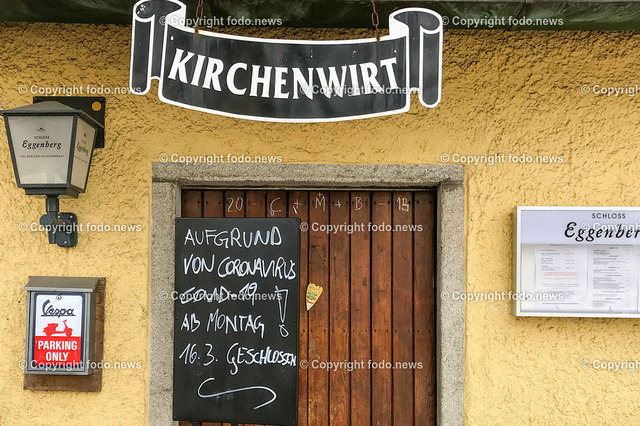 KIRCHENWIRT
SCHLOSS
Eggenberg
20 - C + M + B - 19
AUFGRUND
VON CORONAVIRUS
COVID-19 !
AB MONTAG
16.3. GESCHLOSSEN
Vespa
PARKING
ONLY
SCHLOSS
Eggenber
© Copyright fodo.news
© Copyright fodo.news
© Copyright fodo.news
© Copyright fodo.news
© Copyright fodo.news
© Copyright fodo.news
© Copyright fodo.news
© Copyright fodo.news
© Copyright fodo.news
© Copyright fodo.news
© Copyright fodo.news
© Copyright fodo.news
© Copyright fodo.news
© Copyright fodo.news